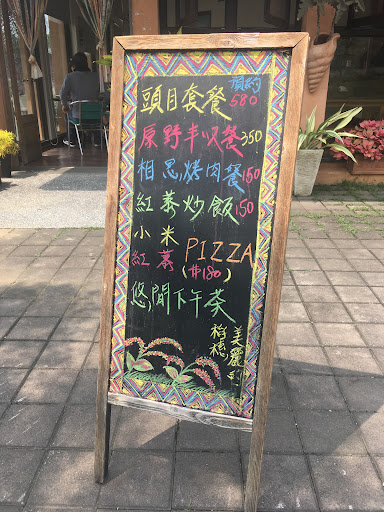 頭目套餐 預約 580
原野丰收餐 350
相思烤肉餐 150
紅藜炒飯 150
小米
紅藜 PIZZA
(#180)
悠閒下午茶
美麗
稻穗